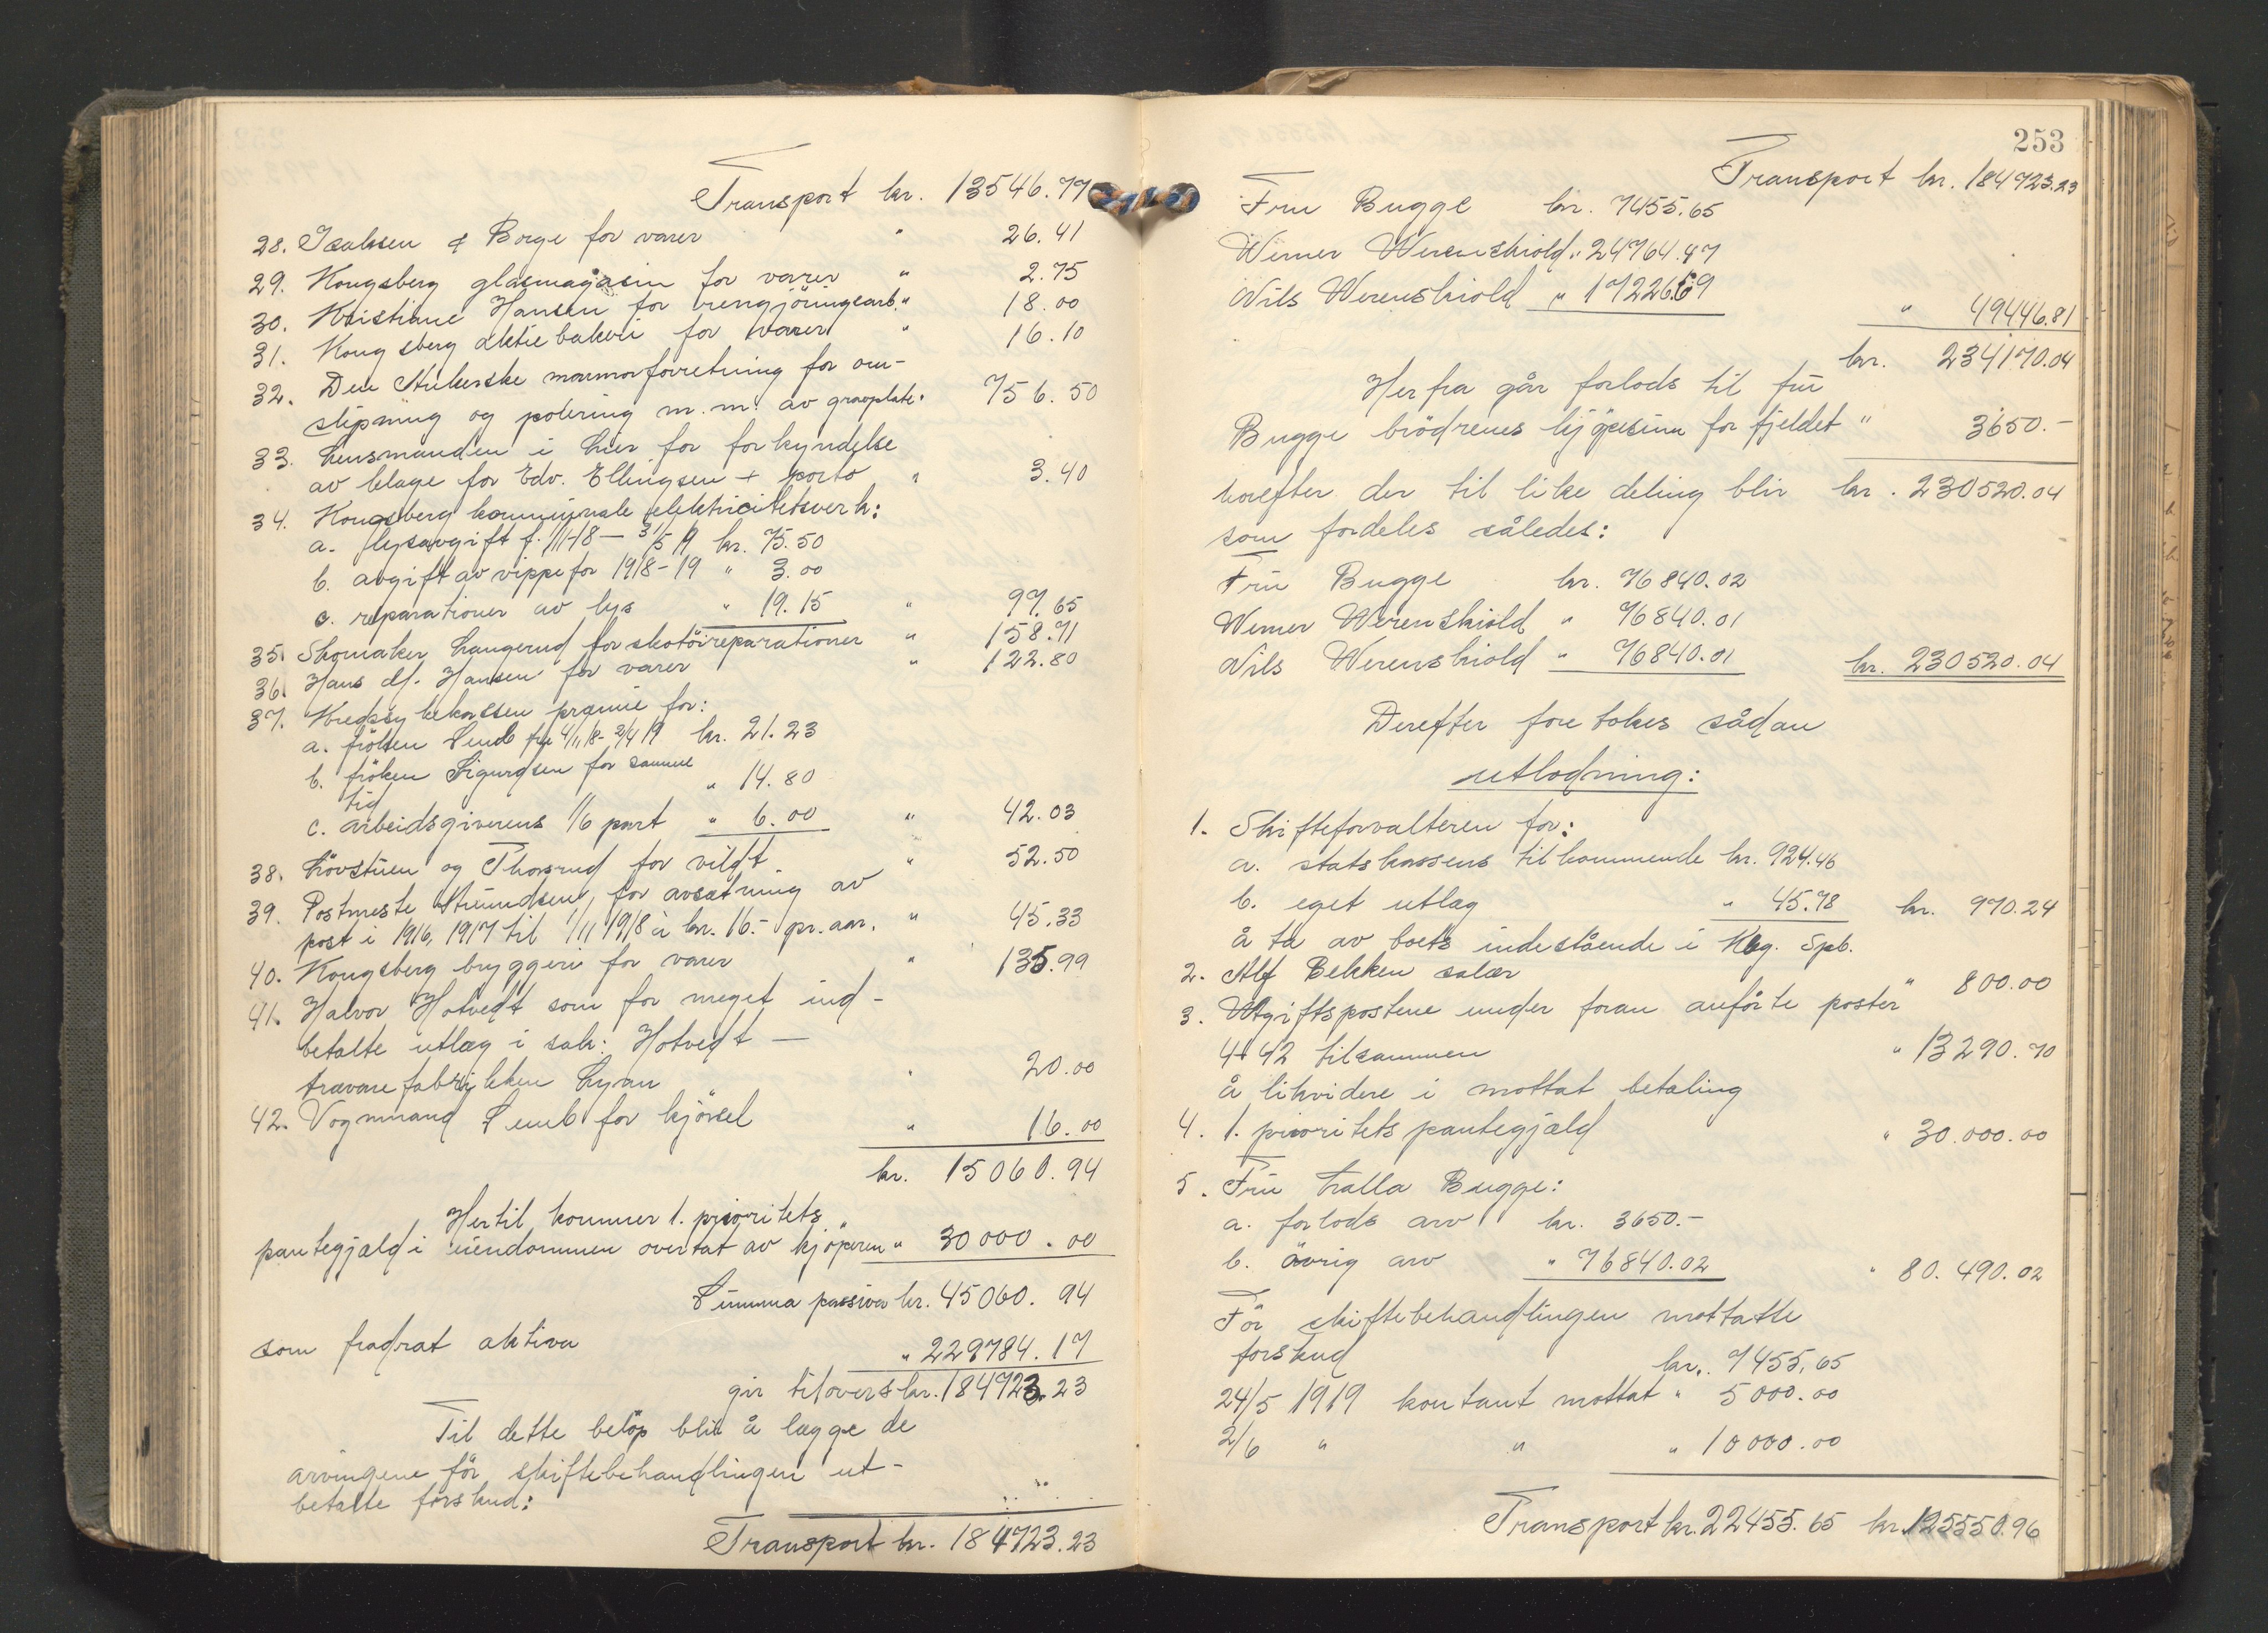 Transport kr. 13546.77
28. Isaksen & Borge for varer " 26.41
29. Kongsberg glasmagasin for varer " 2.75
30. Kristiane Hansen for rengjöringsarb. " 18.00
31. Kongsberg aktiebakeri for varer " 16.10
32. Den Ankerske marmorforretning for om-
slipning og polering m.m. av gravplate " 756.50
33. Lensmanden i Lier for forkyndelse
av klage for Edv. Ellingsen + porto " 3.40
34. Kongsberg kommunale elektricitetsverk:
a. lysavgift f. 1/11 18 – 31/5 19 kr. 75.50
b. avgift av vippe for 1918-19 " 3.00
c. reparationer av lys " 19.15 " 97.65
35. Skomaker Langerud for skotöireparationer " 158.71
36. Hans M. Hansen for varer " 122.80
37. Kredssykekassen præmie for:
a. fröken Semb fra 4/11 18 - 2/4 19 kr. 21.23
b. fröken Sigurdsen for samme
tid " 14.80
c. arbeidsgiverens 1/6 part " 6.00 " 42.03
38. Lövstuen og Thorsrud for vildt " 52.50
39. Postmester Amundsen, for avsætning av
post i 1916, 1917 til 1/11 1918 à kr. 16.- pr. aar. " 45.33
40. Kongsberg bryggeri for varer " 135.99
41. Halvor Hotvedt som for meget ind-
betalte utlæg i sak: Hotvedt —
trævarefabrikken Lyan " 20.00
42. Vognmand Semb for kjörsel " 16.00
kr. 15060.94
Hertil kommer 1. prioritets
pantegjæld i eiendommen overtat av kjöperen " 30000.00
Summa passiva kr. 45060.94
som fradrat aktiva " 229784.17
gir tilovers kr. 184723.23
Til dette belöp blir å lægge de
arvingene för skiftebehandlingen ut-
betalte forskud:
Transport kr. 184723.23
253
Transport kr. 184723.23
Fru Bugge kr. 7455.65
Werner Werenskiold " 24764.47
Nils Werenskiold " 17226.69 " 49446.81
kr. 234170.04
Herfra går forlods til fru
Bugge brödrenes kjöpesum for fjeldet " 3650.-
hvorefter der til like deling blir kr. 230520.04
som fordeles således:
Fru Bugge kr. 76840.02
Werner Werenskiold " 76840.01
Nils Werenskiold " 76840.01 kr. 230520.04
Derefter foretokes sådan
utlodning:
1. Skifteforvalteren for:
a. statskassens tilkommende kr. 924.46
b. eget utlæg " 45.78 kr. 970.24
å ta av boets indestående i Kbg. Spb.
2. Alf Bekken salær " 800.00
3. Utgiftspostene under foran anförte poster
4-42 tilsammen " 13290.70
å likvidere i mottat betaling
4. 1. prioritets pantegjæld " 30.000.00
5. Fru Lalla Bugge:
a. forlods arv kr. 3650.-
b. övrig arv " 76840.02 " 80.490.02
För skiftebehandlingen mottatte
forskud kr. 7455,65
24/5 1919 kontant mottat " 5000.00
2/6 " " " 10000.00
Transport kr. 22455.65 kr. 125550.96